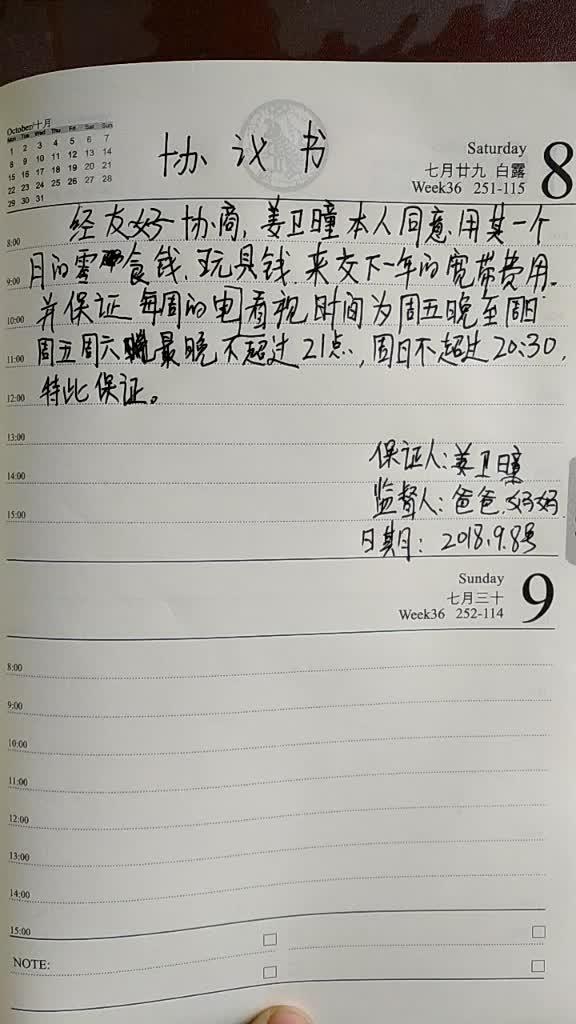 October/十月
Mon Tue Wed Thu Fri Sat Sun
1 2 3 4 5 6 7
8 9 10 11 12 13 14
15 16 17 18 19 20 21
22 23 24 25 26 27 28
29 30 31
协议书
Saturday
七月廿九 白露
Week36 251-115
8
经友好协商,姜卫瞳本人同意,用其一个
8:00
月的零食钱、玩具钱,来交下一年的宽带费用。
9:00
并保证每周的电看视时间为周五晚至周日
10:00
周五周六最晚不超过21点,周日不超过20:30,
11:00
特此保证。
12:00
13:00
保证人:姜卫瞳
14:00
监督人:爸爸、妈妈
15:00
日期:2018.9.8号
Sunday
七月三十
Week36 252-114
9
8:00
9:00
10:00
11:00
12:00
13:00
14:00
15:00
NOTE: